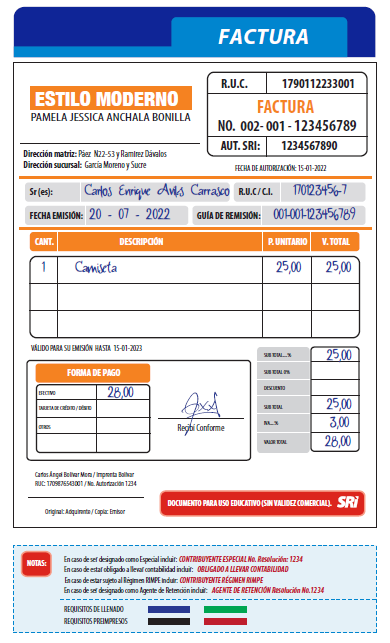 FACTURA
ESTILO MODERNO
PAMELA JESSICA ANCHALA BONILLA
Dirección matriz: Páez N22-53 y Ramírez Dávalos
Dirección sucursal: García Moreno y Sucre
R.U.C. 1790112233001
FACTURA
NO. 002- 001 - 123456789
AUT. SRI: 1234567890
FECHA DE AUTORIZACIÓN: 15-01-2022
Sr (es): Carlos Enrique Avilés Carrasco R.U.C / C.I. 170123456-7
FECHA EMISIÓN: 20 - 07 - 2022 GUÍA DE REMISIÓN: 001-001-123456789
CANT. DESCRIPCIÓN P. UNITARIO V. TOTAL
1 Camiseta 25,00 25,00
VÁLIDO PARA SU EMISIÓN HASTA 15-01-2023
FORMA DE PAGO
EFECTIVO 28,00
TARJETA DE CRÉDITO / DÉBITO
OTROS
Recibí Conforme
SUB TOTAL...% 25,00
SUB TOTAL 0%
DESCUENTO
SUB TOTAL 25,00
IVA...% 3,00
VALOR TOTAL 28,00
Carlos Ángel Bolívar Mora / Imprenta Bolívar
RUC: 1709876543001 / No. Autorización 1234
Original: Adquirente / Copia: Emisor
DOCUMENTO PARA USO EDUCATIVO (SIN VALIDEZ COMERCIAL). SRi
NOTAS:
En caso de ser designado como Especial incluir: CONTRIBUYENTE ESPECIAL No. Resolución: 1234
En caso de estar obligado a llevar contabilidad incluir: OBLIGADO A LLEVAR CONTABILIDAD
En caso de estar sujeto al Régimen RIMPE incluir: CONTRIBUYENTE RÉGIMEN RIMPE
En caso de ser designado como Agente de Retención incluir: AGENTE DE RETENCIÓN Resolución No.1234
REQUISITOS DE LLENADO
REQUISITOS PREIMPRESOS